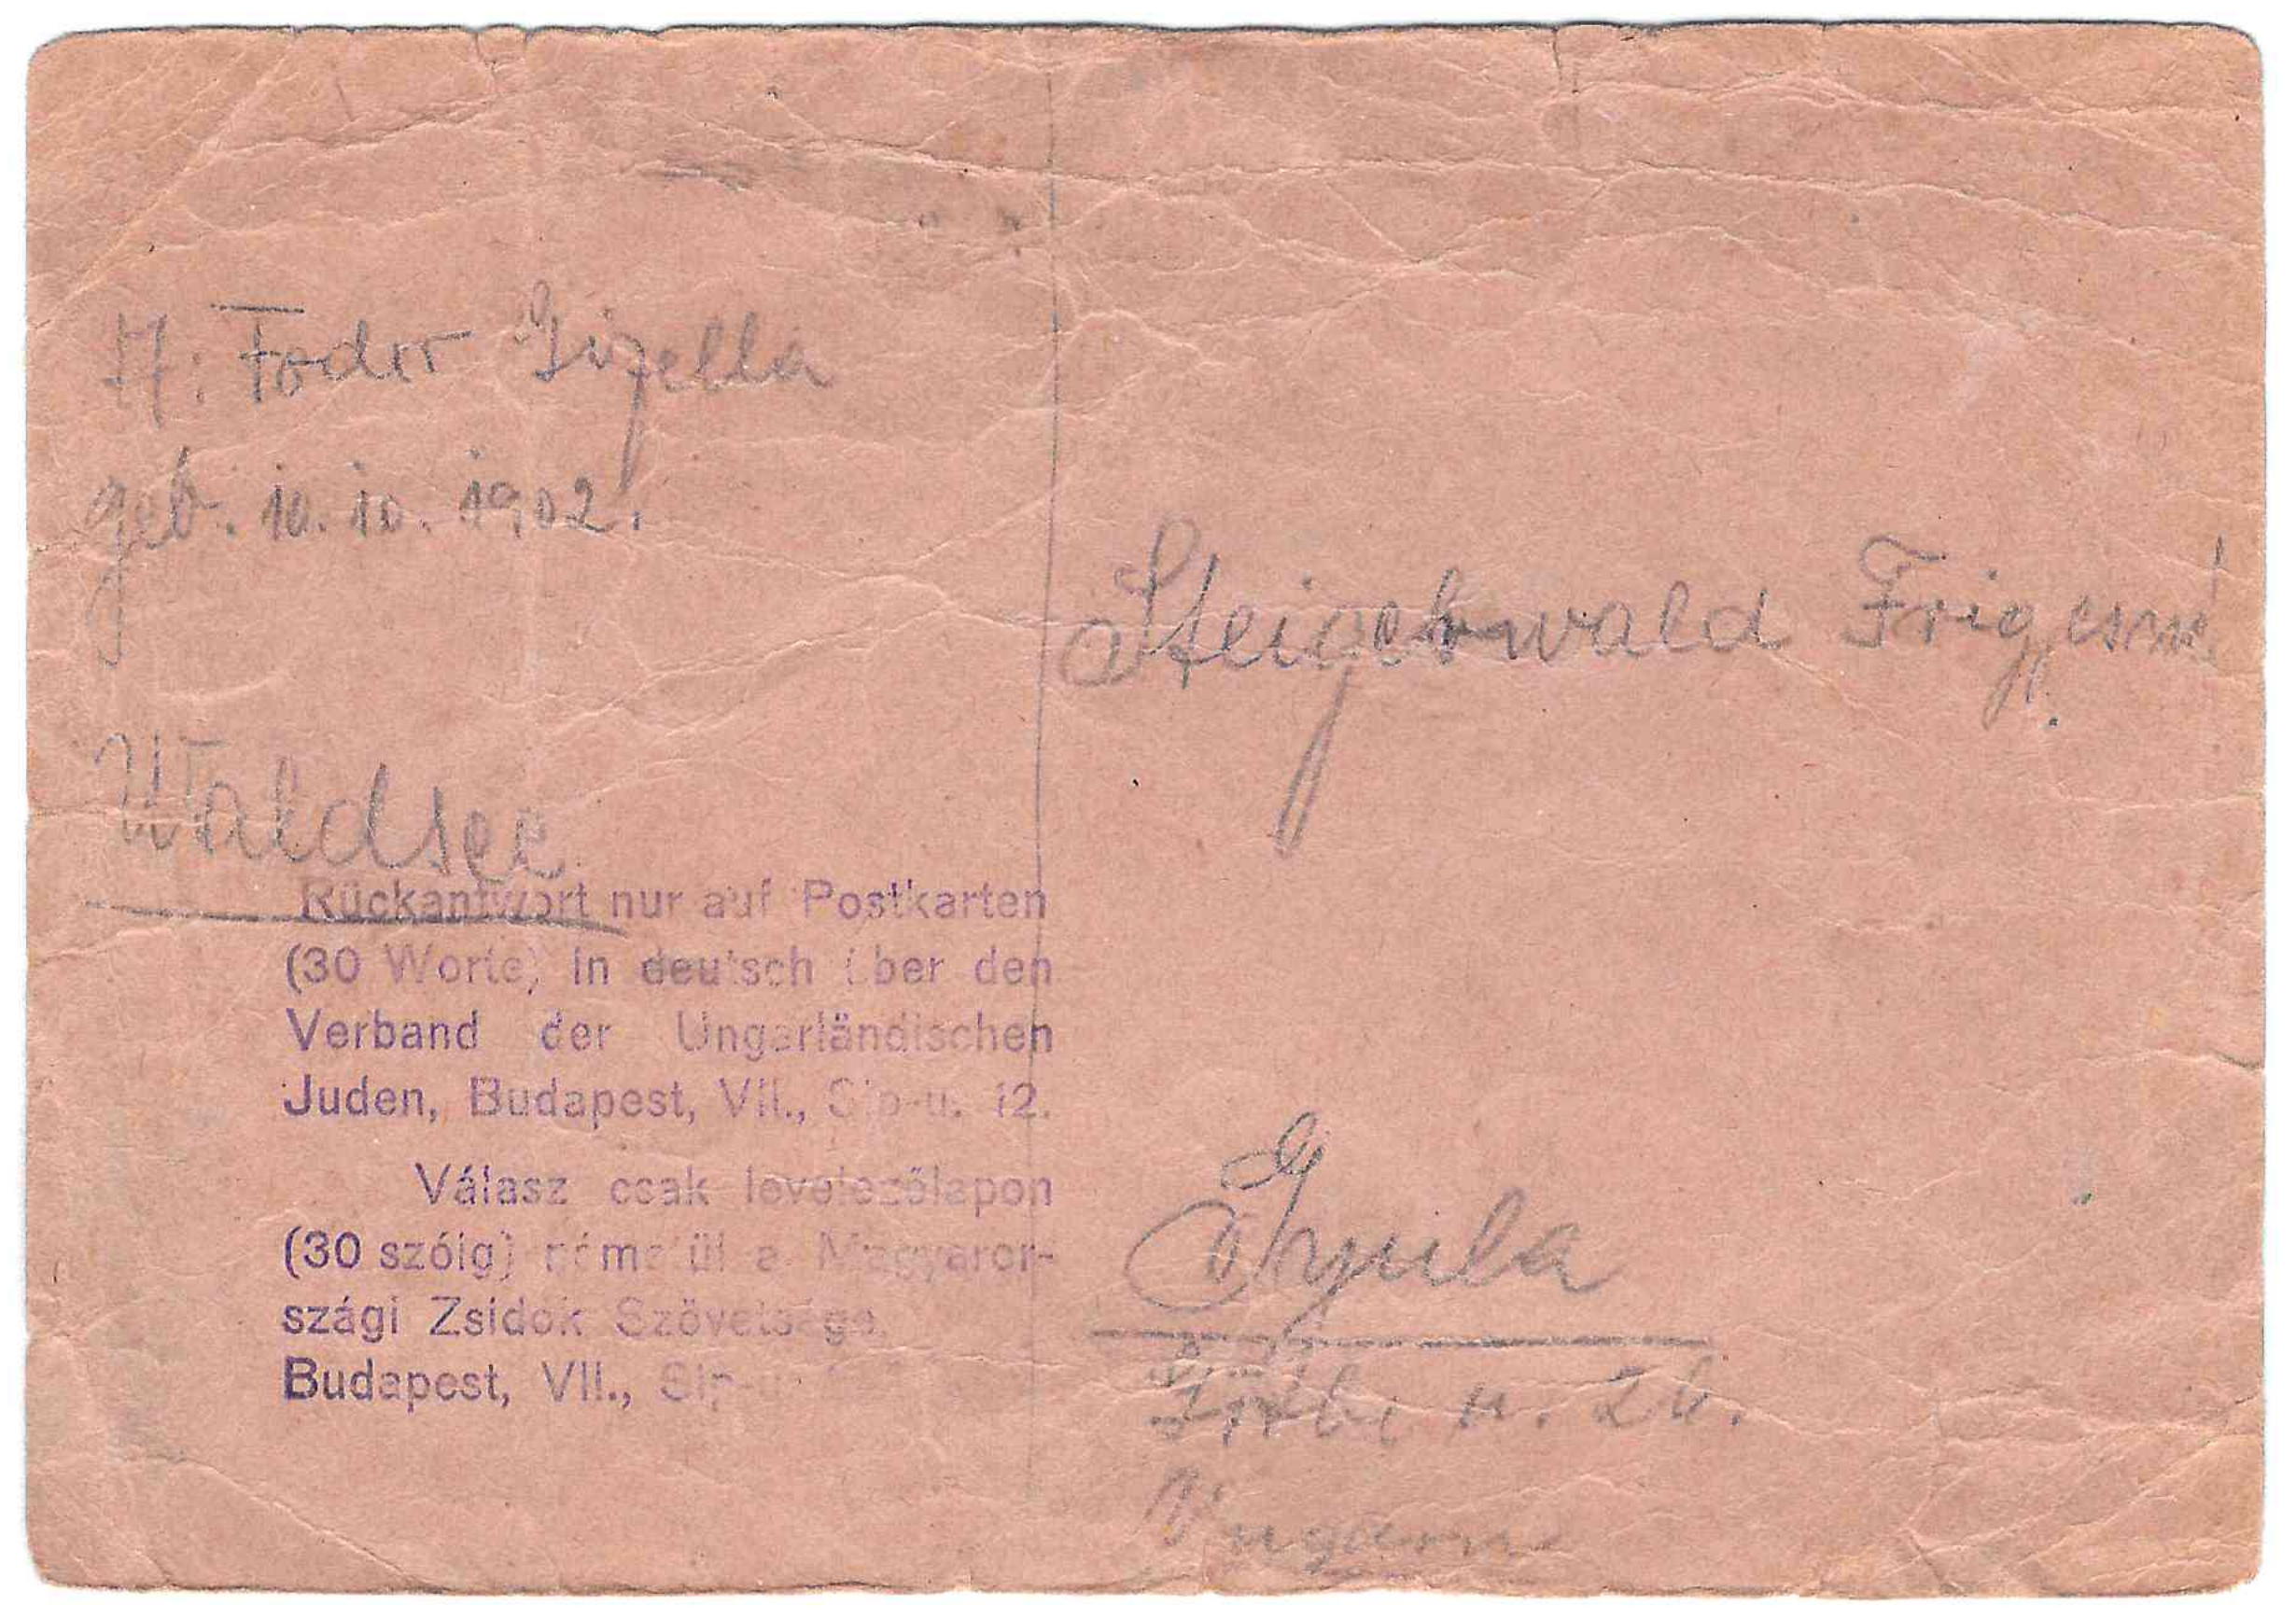 Fodor Gizella
geb. 10. 10. 1902.
Waldsee
Rückantwort nur auf Postkarten
(30 Worte) in deutsch über den
Verband der Ungarländischen
Juden, Budapest, VII., Sip-u. 12.
Válasz csak levelezőlapon
(30 szóig) németül a Magyaror-
szági Zsidók Szövetsége,
Budapest, VII., Sip-
Steigerwald Frigyesné
Gyula
u. 26.
Ungarn